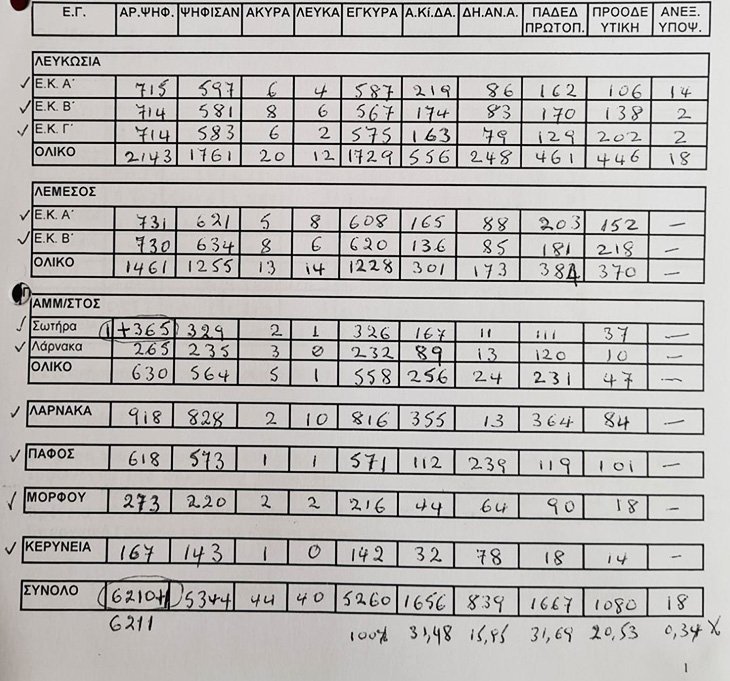 Ε.Γ. ΑΡ.ΨΗΦ. ΨΗΦΙΣΑΝ ΑΚΥΡΑ ΛΕΥΚΑ ΕΓΚΥΡΑ Α.Κί.ΔΑ. ΔΗ.ΑΝ.Α. ΠΑΔΕΔ ΠΡΟΟΔΕ ΑΝΕΞ.
ΠΡΩΤΟΠ. ΥΤΙΚΗ ΥΠΟΨ.
ΛΕΥΚΩΣΙΑ
Ε.Κ. Α΄ 715 597 6 4 587 219 86 162 106 14
Ε.Κ. Β΄ 714 581 8 6 567 174 83 170 138 2
Ε.Κ. Γ΄ 714 583 6 2 575 163 79 129 202 2
ΟΛΙΚΟ 2143 1761 20 12 1729 556 248 461 446 18
ΛΕΜΕΣΟΣ
Ε.Κ. Α΄ 731 621 5 8 608 165 88 203 152 —
Ε.Κ. Β΄ 730 634 8 6 620 136 85 181 218 —
ΟΛΙΚΟ 1461 1255 13 14 1228 301 173 384 370 —
ΑΜΜ/ΣΤΟΣ
Σωτήρα 1+365 329 2 1 326 167 11 111 37 —
Λάρνακα 265 235 3 0 232 89 13 120 10 —
ΟΛΙΚΟ 630 564 5 1 558 256 24 231 47 —
ΛΑΡΝΑΚΑ 918 828 2 10 816 355 13 364 84 —
ΠΑΦΟΣ 618 573 1 1 571 112 239 119 101 —
ΜΟΡΦΟΥ 273 220 2 2 216 44 64 90 18 —
ΚΕΡΥΝΕΙΑ 167 143 1 0 142 32 78 18 14 —
ΣΥΝΟΛΟ 6210+1 5344 44 40 5260 1656 839 1667 1080 18
6211 100% 31,48 15,95 31,69 20,53 0,34 %
1